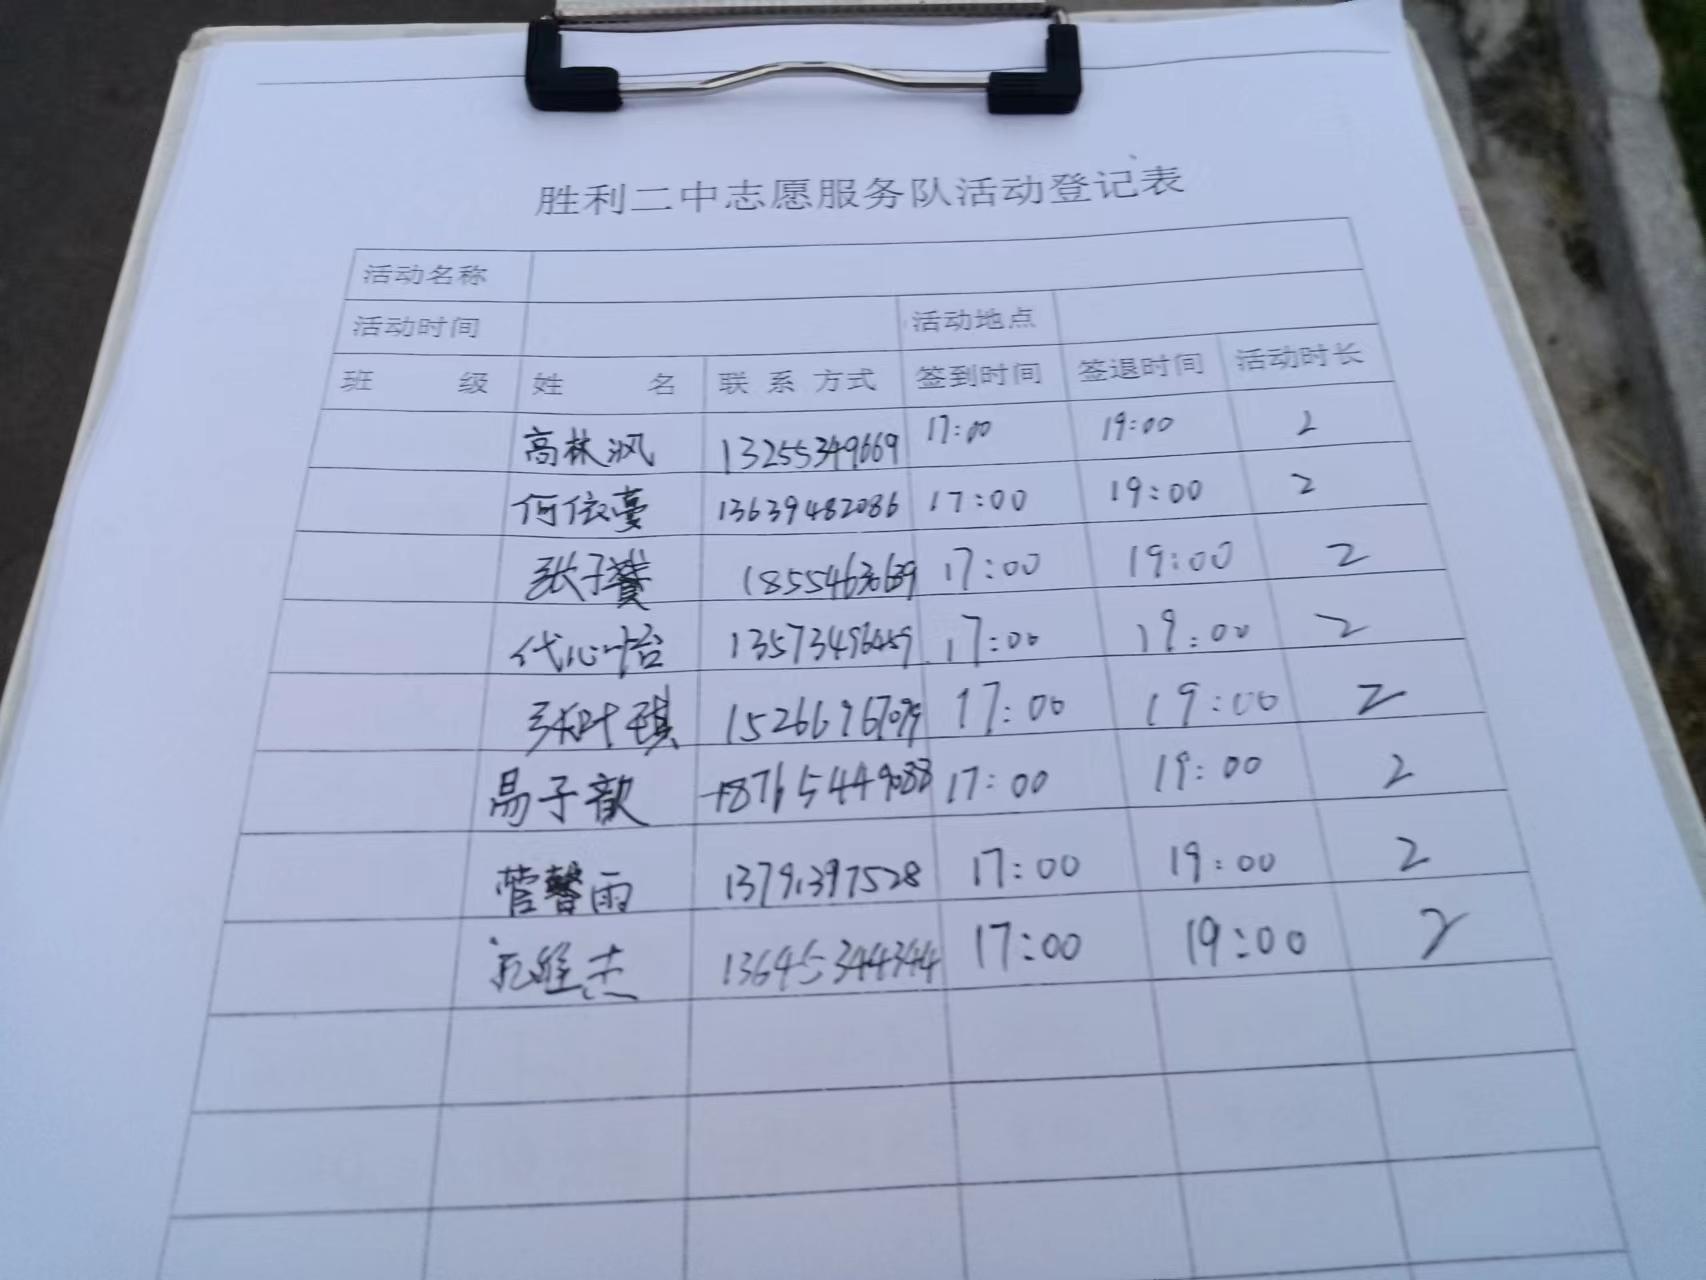 胜利二中志愿服务队活动登记表
活动名称
活动时间 活动地点
班 级 姓 名 联系方式 签到时间 签退时间 活动时长
高林沨 13255349669 17:00 19:00 2
何依蔓 13639482086 17:00 19:00 2
张子赟 17:00 19:00 2
代心怡 17:00 19:00 2
张叶琪 17:00 19:00 2
易子歆 18765449088 17:00 19:00 2
菅馨雨 13791397528 17:00 19:00 2
13645344344 17:00 19:00 2